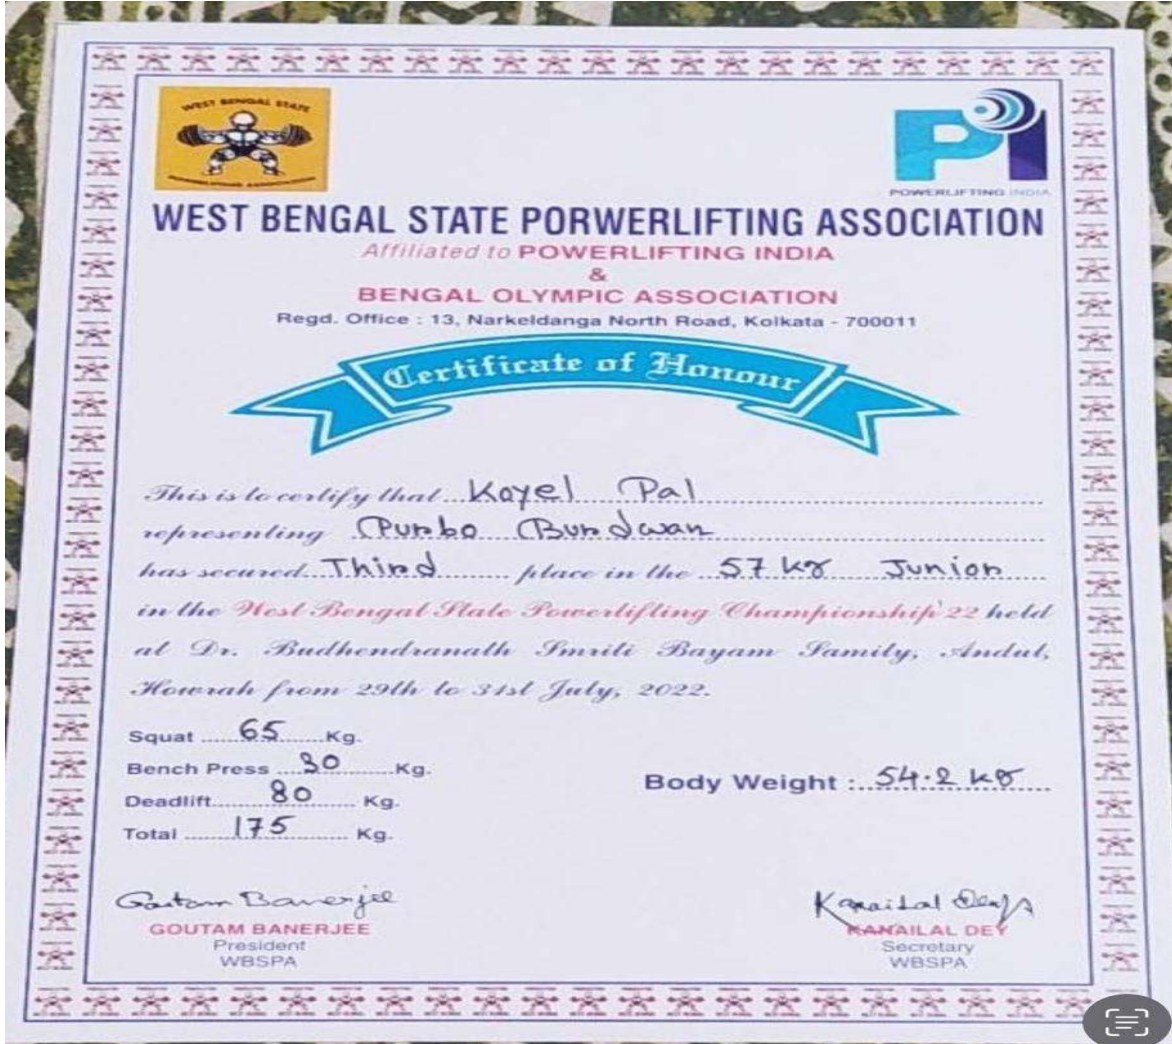 WEST BENGAL STATE
POWERLIFTING ASSOCIATION
PI
POWERLIFTING INDIA
WEST BENGAL STATE PORWERLIFTING ASSOCIATION
Affiliated to POWERLIFTING INDIA
&
BENGAL OLYMPIC ASSOCIATION
Regd. Office : 13, Narkeldanga North Road, Kolkata - 700011
Certificate of Honour
This is to certify that Koyel Pal
representing Purbo Burdwan
has secured Third place in the 57 kg Junior
in the West Bengal State Powerlifting Championship'22 held
at Dr. Budhendranath Smriti Bayam Samity, Andul,
Howrah from 29th to 31st July, 2022.
Squat 65 Kg.
Bench Press 30 Kg.
Deadlift 80 Kg.
Total 175 Kg.
Body Weight : 54.2 kg
Goutam Banerjee
GOUTAM BANERJEE
President
WBSPA
Kanailal Dey
KANAILAL DEY
Secretary
WBSPA